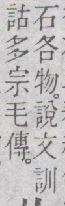 石各物。說文訓
詁多宗毛傳。